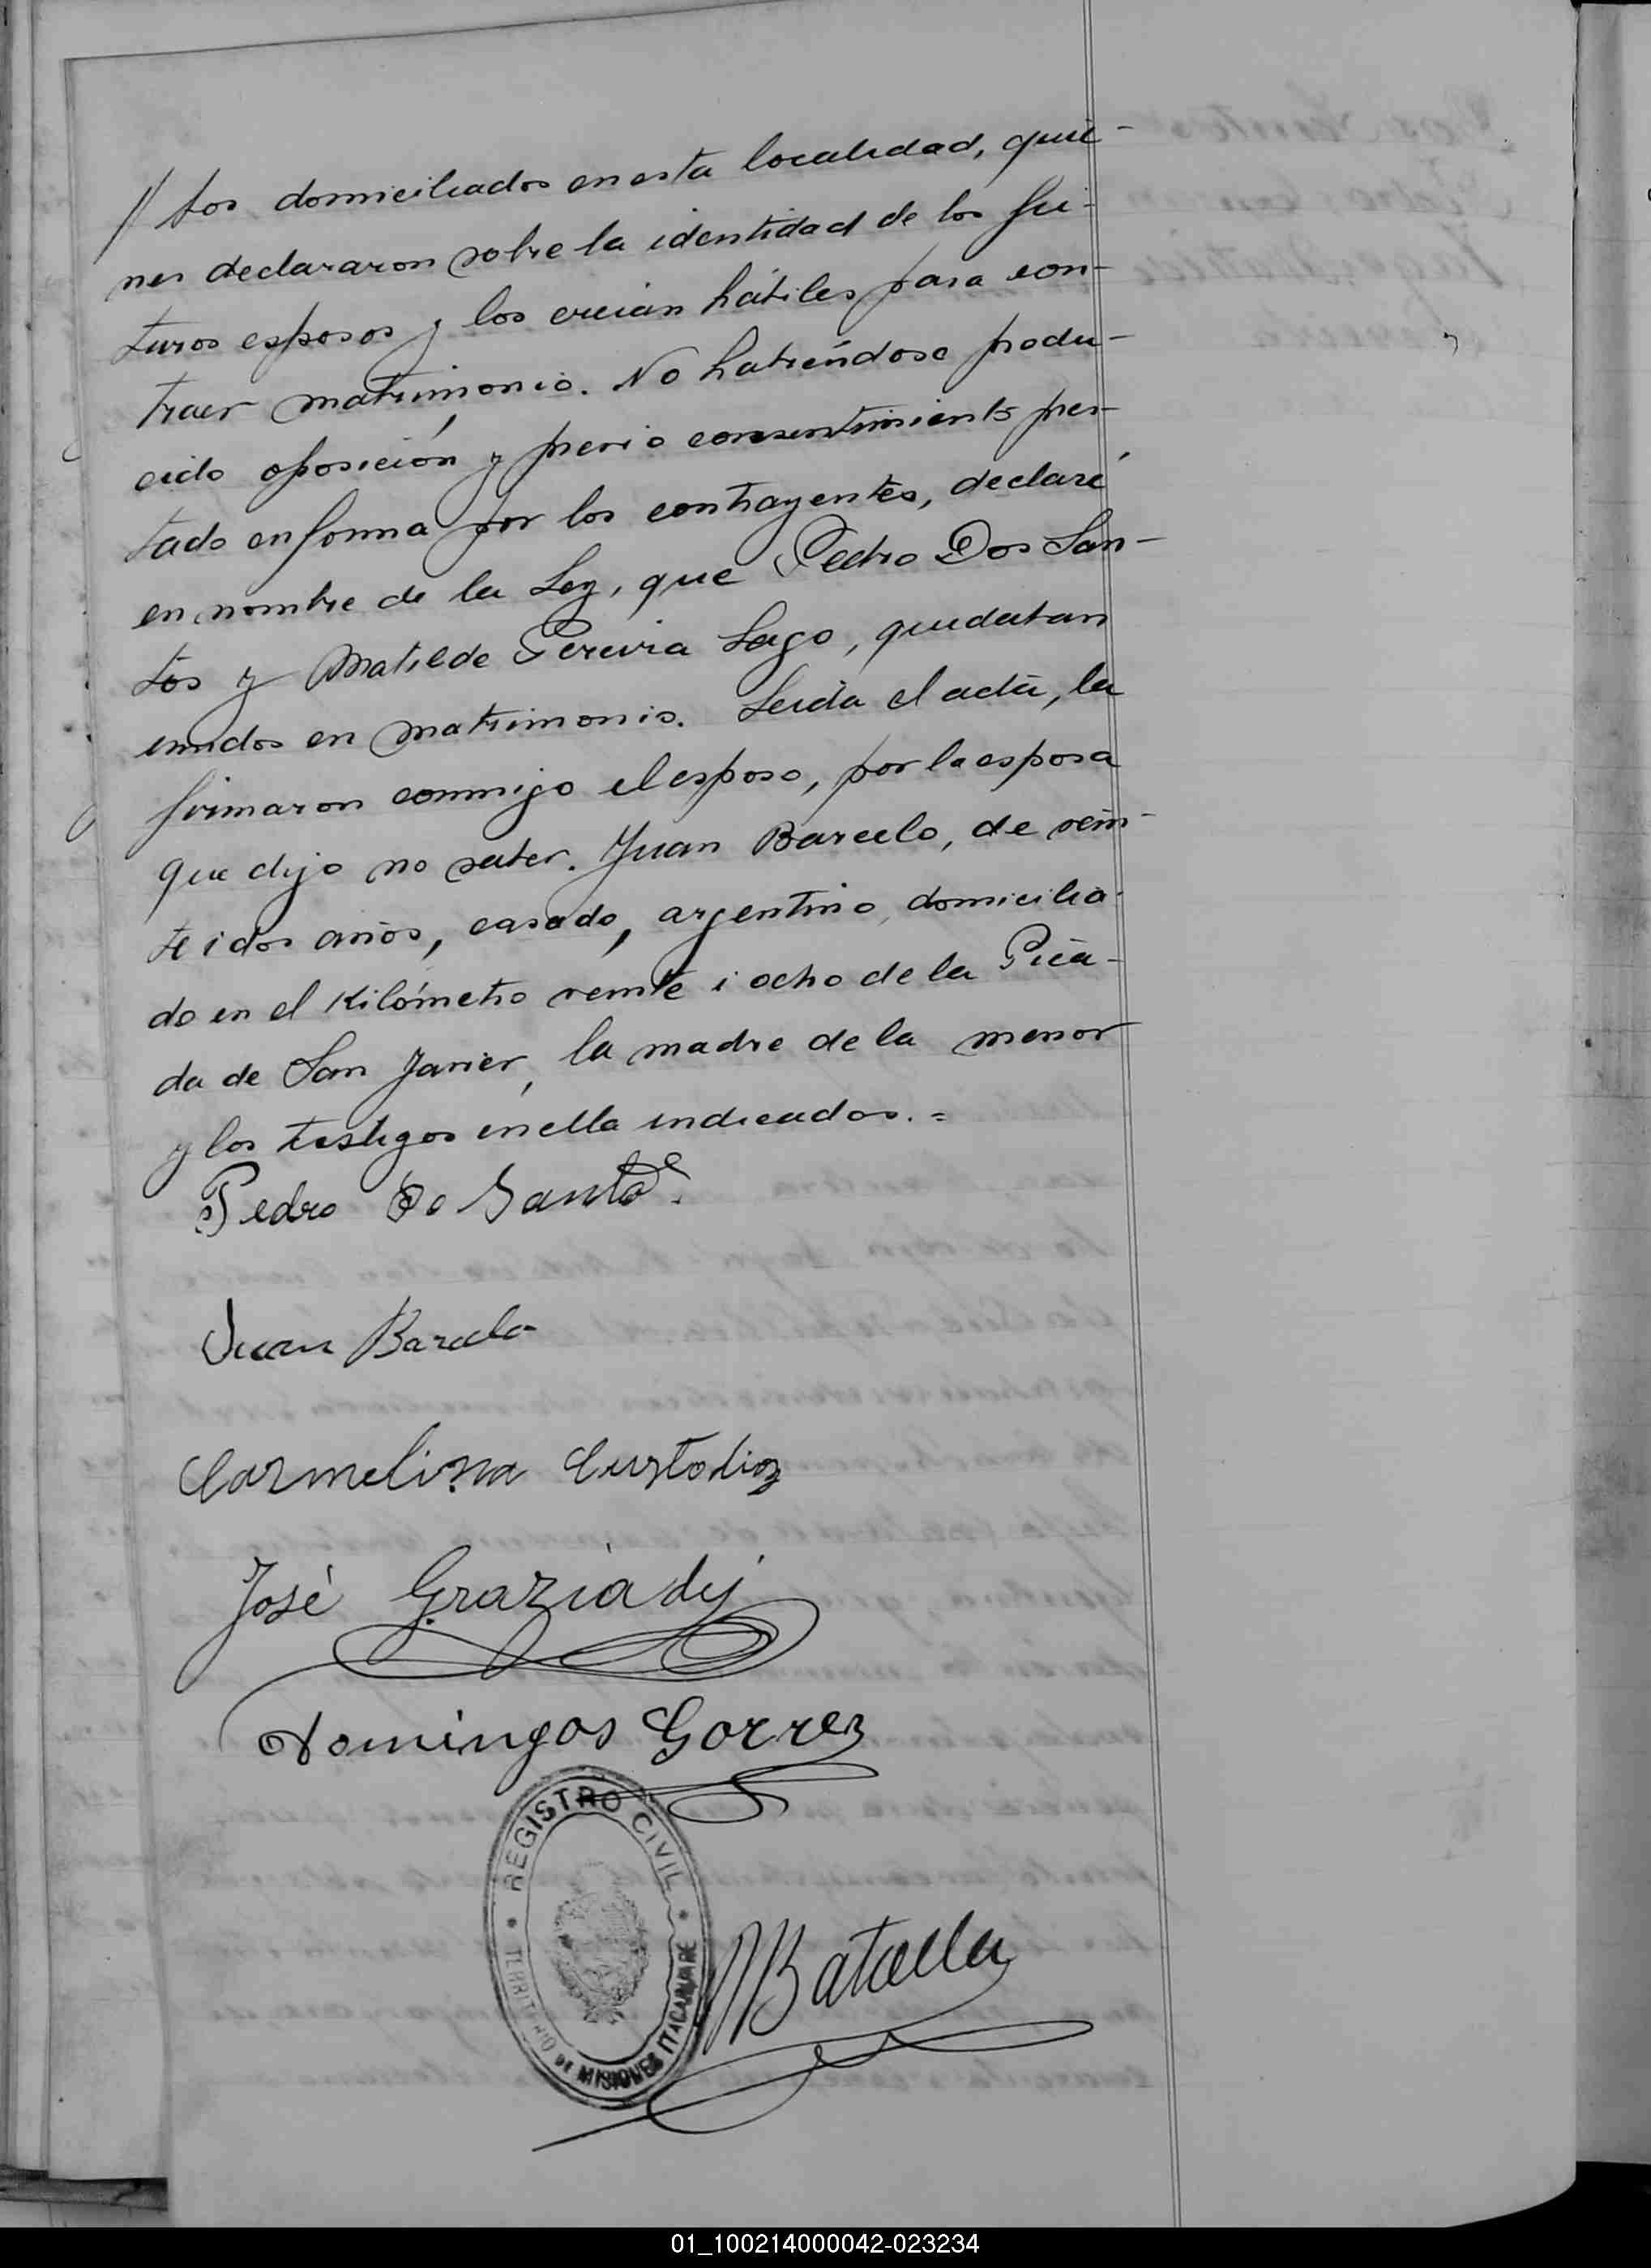 // tos domiciliados en esta localidad, quie-
nes declararon sobre la identidad de los fu-
turos esposos y los creían hábiles para con-
traer matrimonio. No habiéndose produ-
cido oposición y previo consentimiento pres-
tado en forma por los contrayentes, declaré
en nombre de la Ley, que Pedro Dos San-
tos y Matilde Pereira Lago, quedaban
unidos en matrimonio. Leída el acta, la
firmaron conmigo el esposo, por la esposa
que dijo no saber. Juan Barcelo, de vein-
teidos años, casado, argentino, domicilia-
do en el Kilómetro veinte i ocho de la Pica-
da de San Javier, la madre de la menor
y los testigos en ella indicados.=
Pedro Do Santo
Juan Barcelo
Carmelina Custodio
José Graziadij
Domingos Gorrez
REGISTRO CIVIL
TERRITORIO DE MISIONES ITACARUARE
Batalla
01_100214000042-023234